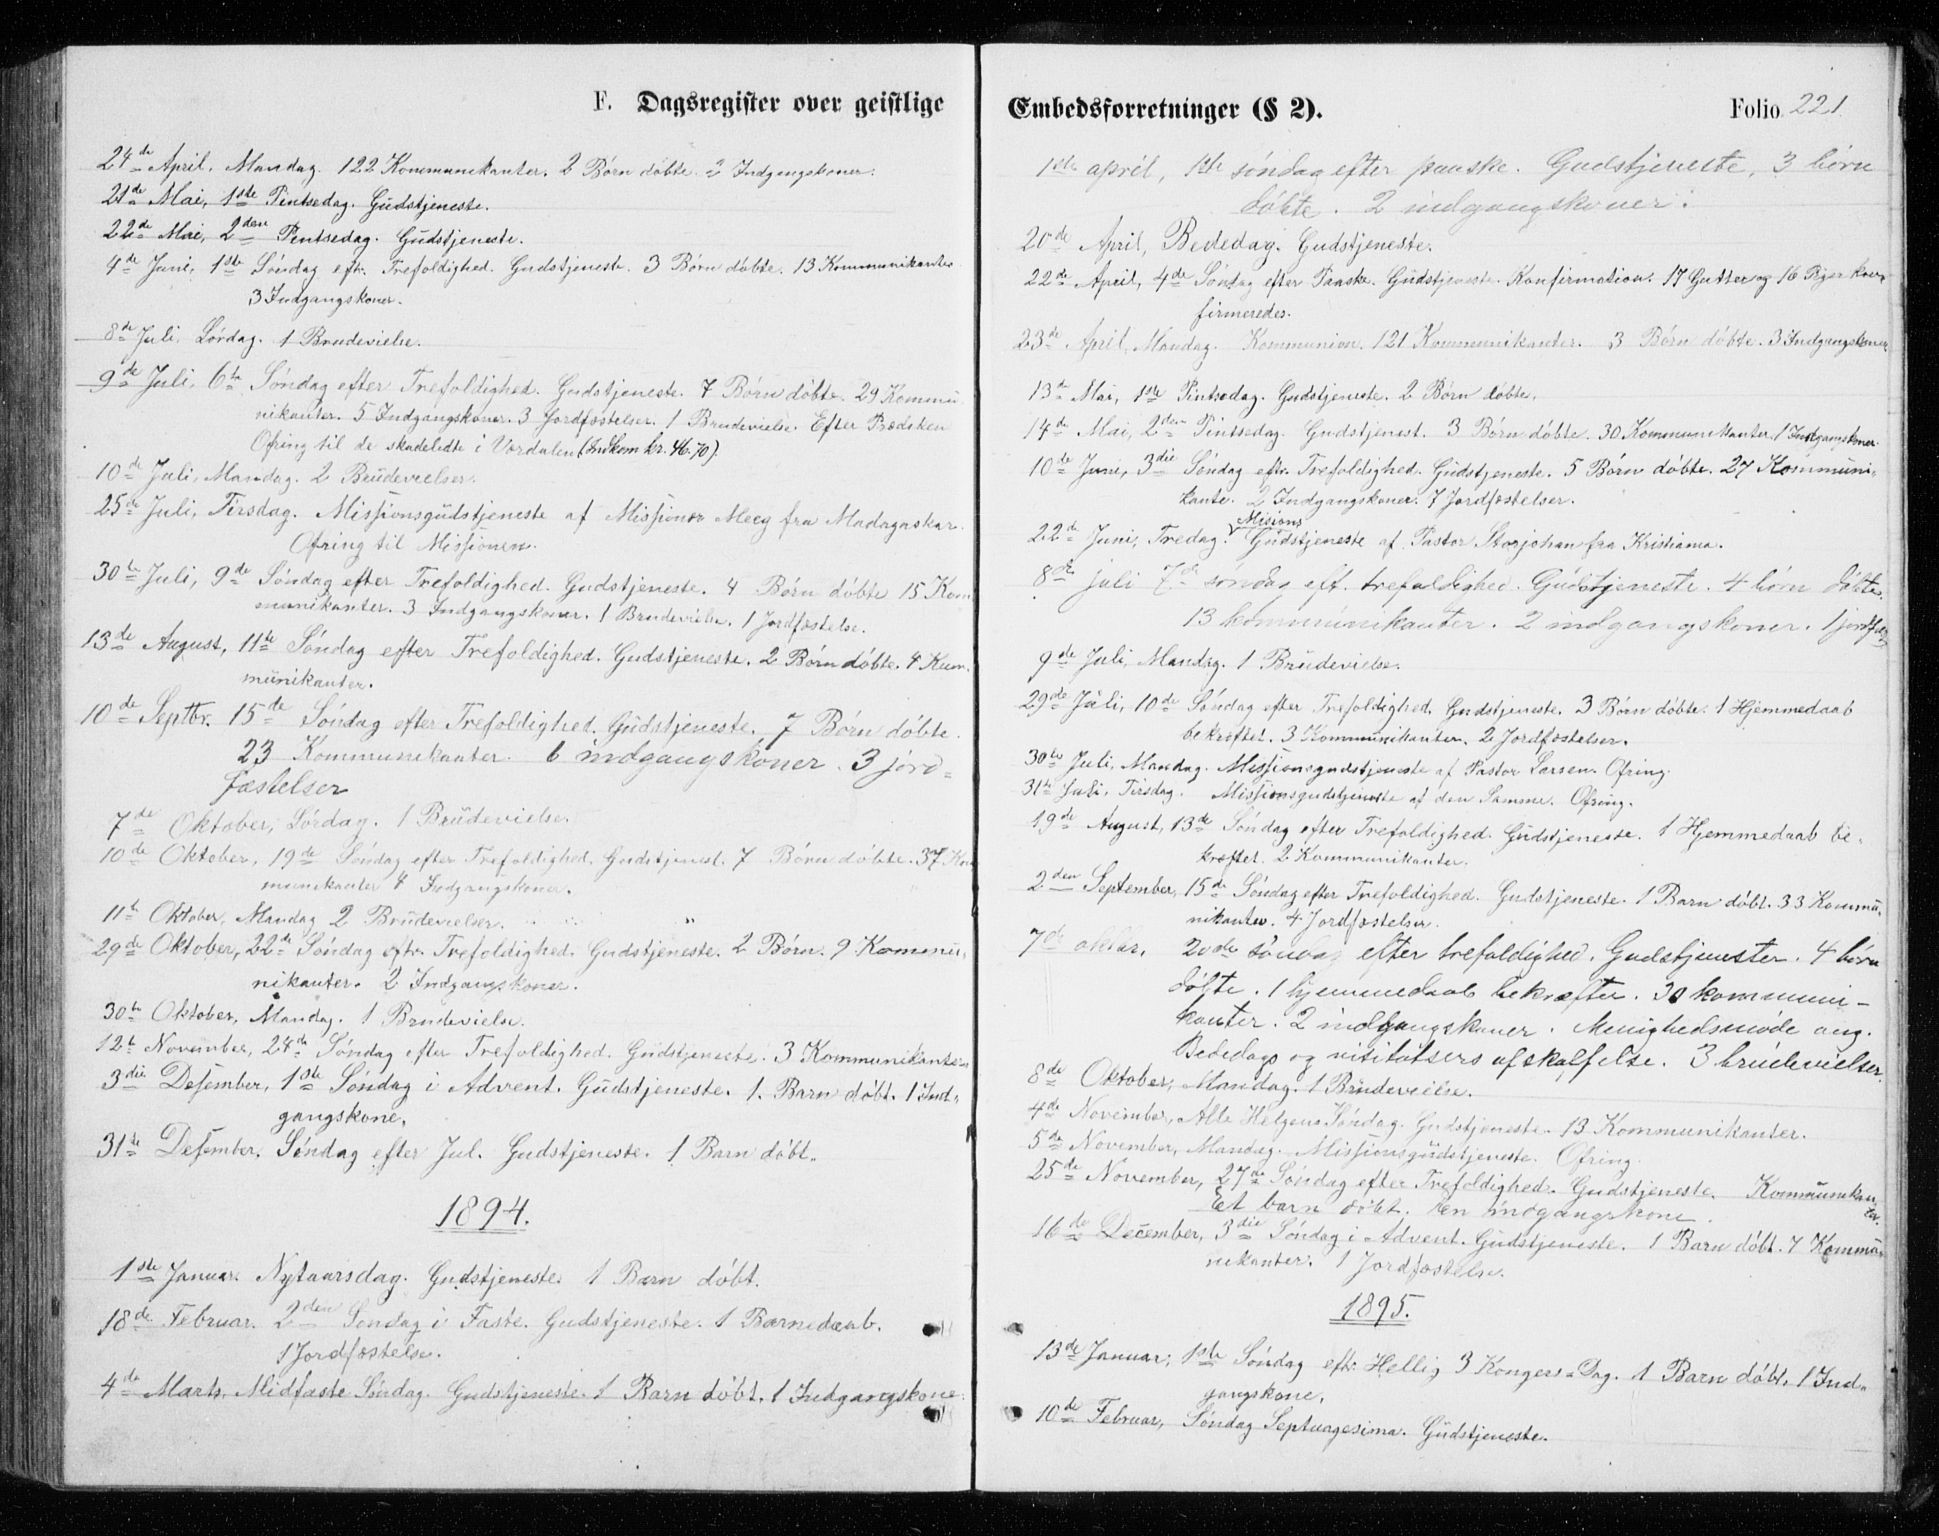 F. Dagsregister over geistlige
24de April, Mandag. 122 Kommunikanter. 2 Børn døbte. 2 Indgangskoner.
21de Mai, 1ste Pintsedag. Gudstjeneste.
22de Mai, 2den Pintsedag. Gudstjeneste.
4de Juni, 1ste Søndag eftr. Trefoldighed. Gudstjeneste. 3 Børn døbte. 13 Kommunikanter
3 Indgangskoner.
8de Juli. Lørdag. 1 Brudevielse.
9de Juli, 6te Søndag efter Trefoldighed. Gudstjeneste. 7 Børn døbte. 29 Kommu-
nikanter. 5 Indgangskoner. 3 Jordfæstelser. 1 Brudevielse. Efter Prædiken
Ofring til de skadelidte i Værdalen (Indkom kr. 46.70).
10de Juli, Mandag. 2 Brudevielser.
25de Juli, Tirsdag. Missionsgudstjeneste af Missionær Meeg fra Madagaskar.
Ofring til Missionen.
30te Juli, 9de Søndag efter Trefoldighed. Gudstjeneste. 4 Børn døbte 15 Kom
munikanter. 3 Indgangskoner. 1 Brudevielse. 1 Jordfæstelse.
13de August, 11te Søndag efter Trefoldighed. Gudstjeneste. 2 Børn døbte. 4 Kum-
munikanter.
10de Septbr. 15de Søndag efter Trefoldighed. Gudstjeneste. 7 Børn døbte.
23 Kommunikanter. 6 indgangskoner. 3 jord-
fæstelser
7de Oktober, Lørdag. 1 Brudevielse.
10de Oktober, 19de Søndag efter Trefoldighed. Gudstjenest. 7 Børn døbte. 37 Kom
munikanter 4 Indgangskoner.
11te Oktober, Mandag 2 Brudevielser. "
29de Oktober, 22de Søndag eftr. Trefoldighed. Gudstjeneste. 2 Børn. 9 Kommu-
nikanter. 2 Indgangskoner.
30te Oktober, Mandag. 1 Brudevielse.
12te November, 24de Søndag efter Trefoldighed. Gudstjeneste. 3 Kommunikanter
3die Desember, 1ste Søndag i Advent. Gudstjeneste. 1. Barn døbt. 1 Ind-
gangskone.
31te Desember. Søndag efter Jul. Gudstjeneste. 1 Barn døbt.
1894.
1ste Januar. Nytaarsdag. Gudstjeneste. 1 Barn døbt.
18de Februar. 2den Søndag i Faste. Gudstjeneste. 1 Barnedaab.
1 Jordfæstelse.
4de Marts, Midfaste Søndag. Gudstjeneste. 1 Barn døbt. 1 Indgangskone.
Embedsforretninger (§ 2). Folio 221
1ste april, 1ste søndag efter paaske. Gudstjeneste, 3 børn
døbte. 2 indgangskoner.
20de April, Bededag. Gudstjeneste.
22de April, 4de Søndag efter Paaske. Gudstjeneste. Konfirmation. 17 Gutter og 16 Piger kon-
firmeredes.
23de April, Mandag. Kommunion. 121 Kommunikanter. 3 Børn døbte. 3 Indgangskoner
13de Mai, 1ste Pintsedag. Gudstjeneste. 2 Børn døbte.
14de Mai, 2den Pintsedag. Gudstjenest. 3 Børn døbte. 30 Kommunikanter. 1 Indgangskoner.
10de Juni, 3die Søndag eftr. Trefoldighed. Gudstjeneste. 5 Børn døbte. 27 Kommuni-
kante. 2 Indgangskoner. 7 Jordfæstelser.
Misions
22de Juni, Fredag. Gudstjeneste af Pastor Storjohan fra Kristiania.
8de juli 7de søndag eft. trefoldighed. Gudstjeneste. 4 børn døbte.
13 kommunikanter. 2 indgangskoner. 1 jordfæst
9de Juli, Mandag. 1 Brudevielse.
29de Juli, 10de Søndag efter Trefoldighed. Gudstjeneste. 3 Børn døbte. 1 Hjemmedaab
bekræftet. 3 Kommunikanter. 2 Jordfæstelser.
30te Juli, Mandag. Missionsgudstjeneste af Pastor Larsen. Ofring.
31te Juli, Tirsdag. Missionsgudstjeneste af den Samme. Ofring.
19de August, 13de Søndag efter Trefoldighed. Gudstjeneste. 1 Hjemmedaab be-
kræftet. 2 Kommunikanter.
2den September, 15de Søndag efter Trefoldighed. Gudstjeneste. 1 Barn døbt. 33 Kommu-
nikanter. 4 Jordfæstelser.
7de oktbr. 20de søndag efter trefoldighed. Gudstjenester. 4 børn
døbte. 1 hjemmedaab bekræfter. 30 kommuni-
kanter. 2 indgangskoner. Menighedsmøde ang.
Bededags og afskaffelse. 3 brudevielser.
8de Oktober, Mandag. 1 Brudevielse.
4de November, Alle Helgens Søndag. Gudstjeneste. 13 Kommunikanter.
5de November, Mandag. Missionsgudstjeneste. Ofring.
25de November, 27de Søndag efter Trefoldighed. Gudstjeneste. Kommunikan-
ter.
Et barn døbt. en indgangskone.
16de December, 3die Søndag i Advent. Gudstjeneste. 1 Barn døbt. 7 Kommu-
nikanter. 1 Jordfæstelse.
1895.
13de Januar, 1ste Søndag eftr. Hellig 3 Kongers Dag. 1 Barn døbt. 1 Ind-
gangskone.
10de Februar, Søndag Septuagesima. Gudstjeneste.